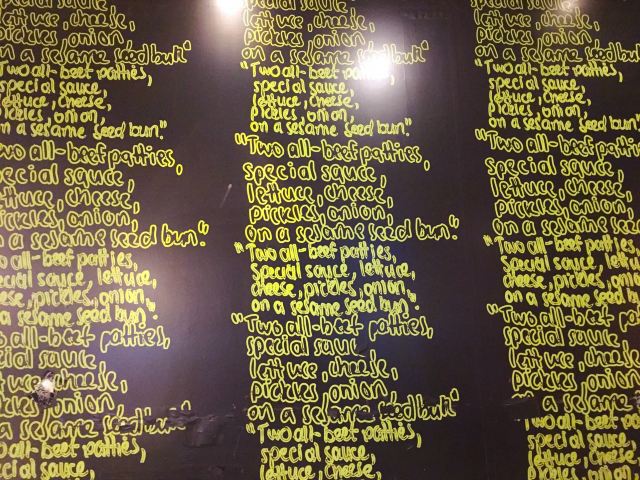 special sauce
lettuce, cheese,
pickles, onion
on a sesame seed bun"
Two all-beef patties,
special sauce,
lettuce, cheese,
pickles, onion,
on a sesame seed bun."
Two all-beef patties,
special sauce,
lettuce, cheese,
pickles, onion,
a sesame seed bun."
Two all-beef patties,
special sauce, lettuce,
cheese, pickles, onion,
on a sesame seed bun".
all-beef patties,
special sauce
lettuce, cheese,
pickles, onion
a sesame seed bun"
Two all-beef patties,
special sauce,
special sauce
lettuce, cheese,
pickles, onion
on a sesame seed bun"
"Two all-beef patties,
special sauce,
lettuce, cheese,
pickles, onion,
on a sesame seed bun."
"Two all-beef patties,
special sauce,
lettuce, cheese,
pickles, onion,
on a sesame seed bun."
"Two all-beef patties,
special sauce, lettuce,
cheese, pickles, onion,
on a sesame seed bun".
"Two all-beef patties,
special sauce
lettuce, cheese,
pickles, onion
on a sesame seed bun"
"Two all-beef patties,
special sauce,
lettuce, cheese,
special sauce
lettuce, cheese,
pickles, onion
on a sesame seed bun"
"Two all-beef patties,
special sauce,
lettuce, cheese,
pickles, onion,
on a sesame seed bun."
"Two all-beef patties,
special sauce,
lettuce, cheese,
pickles, onion,
on a sesame seed
"Two all-beef patties,
special sauce, lettuce,
cheese, pickles, onion,
on a sesame seed bun
"Two all-beef
special sauce
lettuce, cheese,
pickles, onion
on a sesame seed
Two all-beef patties,
special sauce,
lettuce, cheese,